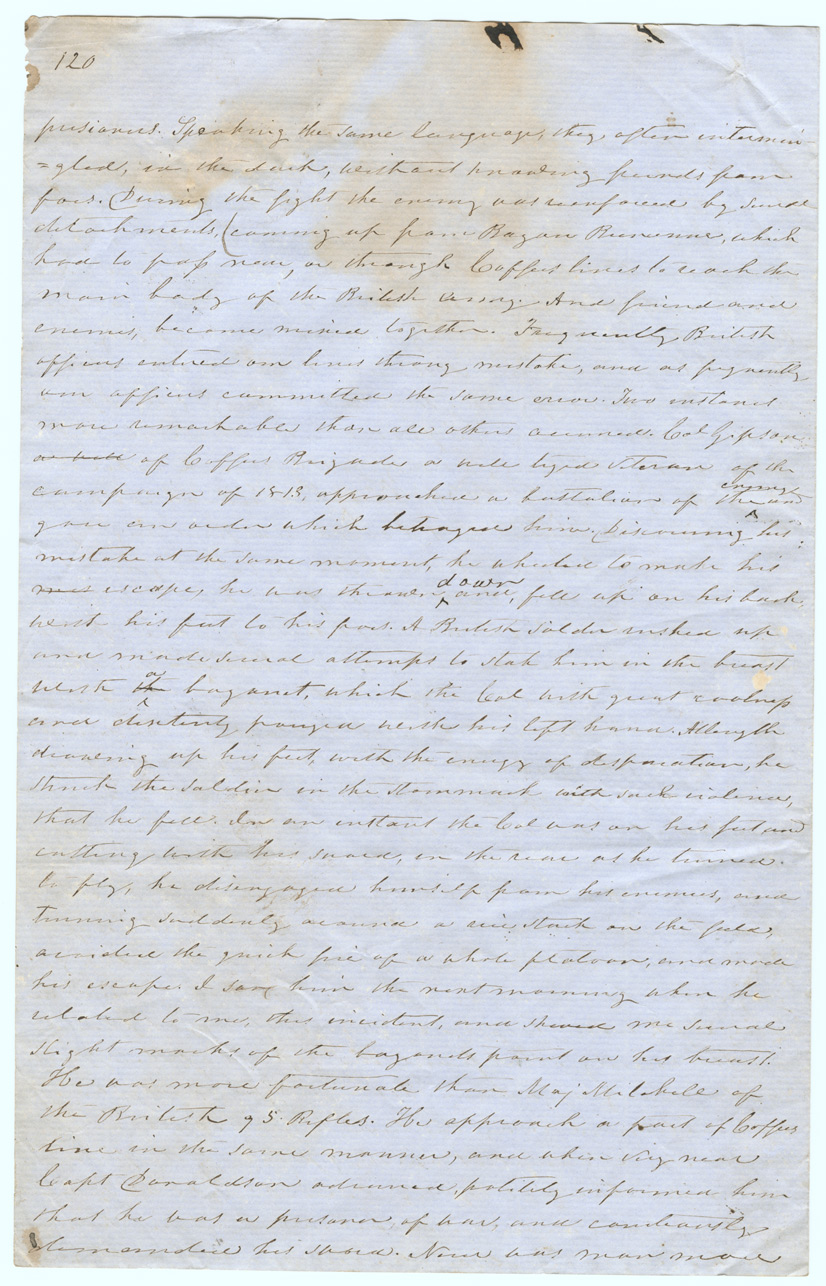 120
prisioners. Speaking the same language, they often intermin-
=gled, in the dark, without knowing friends from
foes. During the fight the enemy was reinforced by several
detachments, (coming up from Bayou Bienvenue, which
had to pass near, or through Coffees lines to reach the
main body of the British army. And friend and
enemies, became mixed together. Frequently British
officers entered our lines throug mistake, and as frequently
our officers committed the same error. Two instances
more remarkable than all other occurred. Col Gipson
of Coffees Brigade a well tried veteran of the
campaign of 1813, approached a battalion of the enemy and
gave an order which betrayed him. Discovering his
mistake at the same moment, he wheeled to make his
escape, he was thrown down and, fell up on his back,
with his feet to his foes. A British soldier rushed up
and made several attempts to stab him in the breast
with a bayonet, which the Col with great coolness
and dexterity parryed with his left hand. At length
drawing up his feet, with the energy of desparation, he
struck the soldier in the stommack with such violence,
that he fell. In an instant the Col was on his feet and
cutting with his sword, in the rear as he turned.
to fly, he disengaged himself from his enemies, and
turning suddenly around a stack on the field,
avoided the quick fire of a whole platoon, and made
his escape. I saw him the next morning when he
related to me, this incident, and showed me several
slight marks of the bayonets point on his breast.
He was more fortunate than Maj Mitchell of
the British 95 Rifles. He approach a part of Coffees
line in the same manner, and when very near
Capt Donaldson advanced, politely informed him
that he was a prisoner, of war, and
demanded his sword. Never was man more